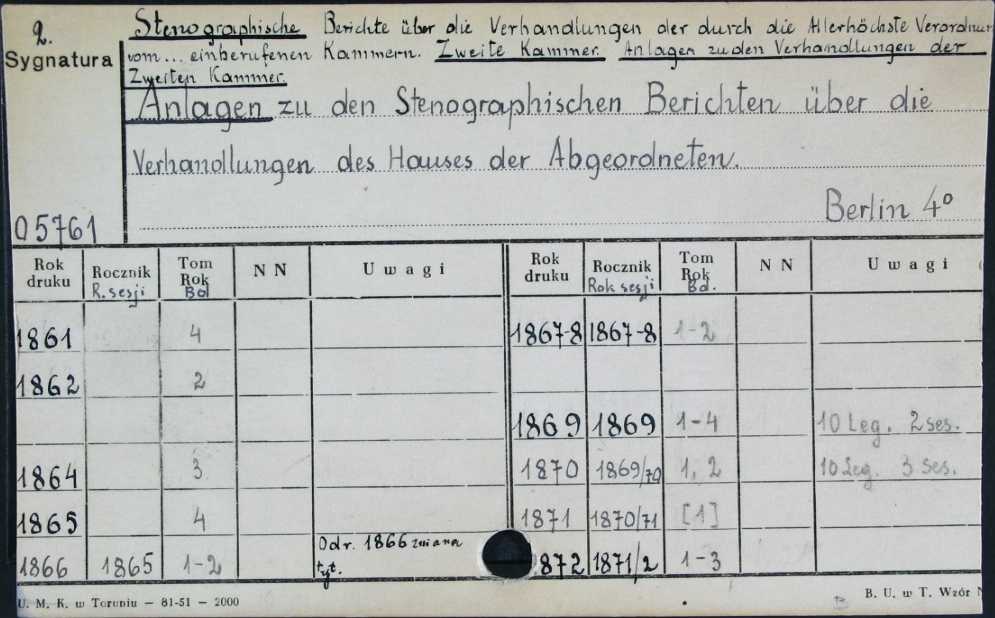 2.
Sygnatura
Stenographische Berichte über die Verhandlungen der durch die Allerhöchste Verordnun
vom ... einberufenen Kammern. Zweite Kammer. Anlagen zu den Verhandlungen der
Zweiten Kammer.
Anlagen zu den Stenographischen Berichten über die
Verhandlungen des Hauses der Abgeordneten.
Berlin 4º
05761
Rok druku Rocznik R. sesji Tom Rok Bd NN Uwagi Rok druku Rocznik Rok sesji Tom Rok Bd. NN Uwagi
1861 4 1867-8 1867-8 1-2
1862 2
1869 1869 1-4 10 Leg. 2 ses.
1864 3 1870 1869/70 1, 2 10 Leg. 3 ses.
1865 4 1871 1870/71 [1]
1866 1865 1-2 Od r. 1866 zmiana tyt. 872 1871/2 1-3
U. M. K. w Toruniu — 81-51 — 2000
B. U. w T. Wzór N